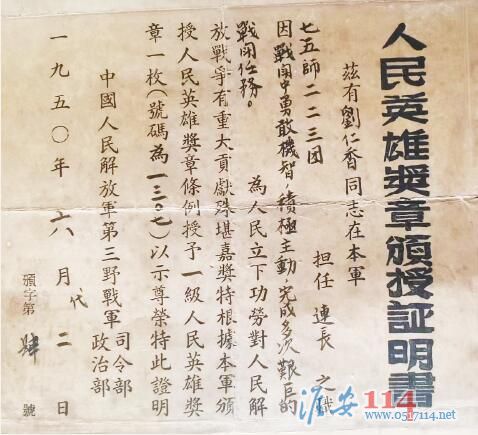 人民英雄獎章頒授証明書
茲有劉仁香同志在本軍
七五師二二三团 担任 連長 之職
因戰鬥中勇敢机智,積極主動,完成多次艱巨的
戰鬥任務。 為人民立下功勞對人民解
放戰爭有重大貢獻殊堪嘉獎特根據本軍頒
授人民英雄獎章條例授予一級人民英雄獎
章一枚(號碼為一三〇七)以示尊榮特此證明
中國人民解放軍第三野戰軍 司令部
政治部
一九五〇年 六 月 二 日
頒字第 肆 號
淮安114
www.0517114.net